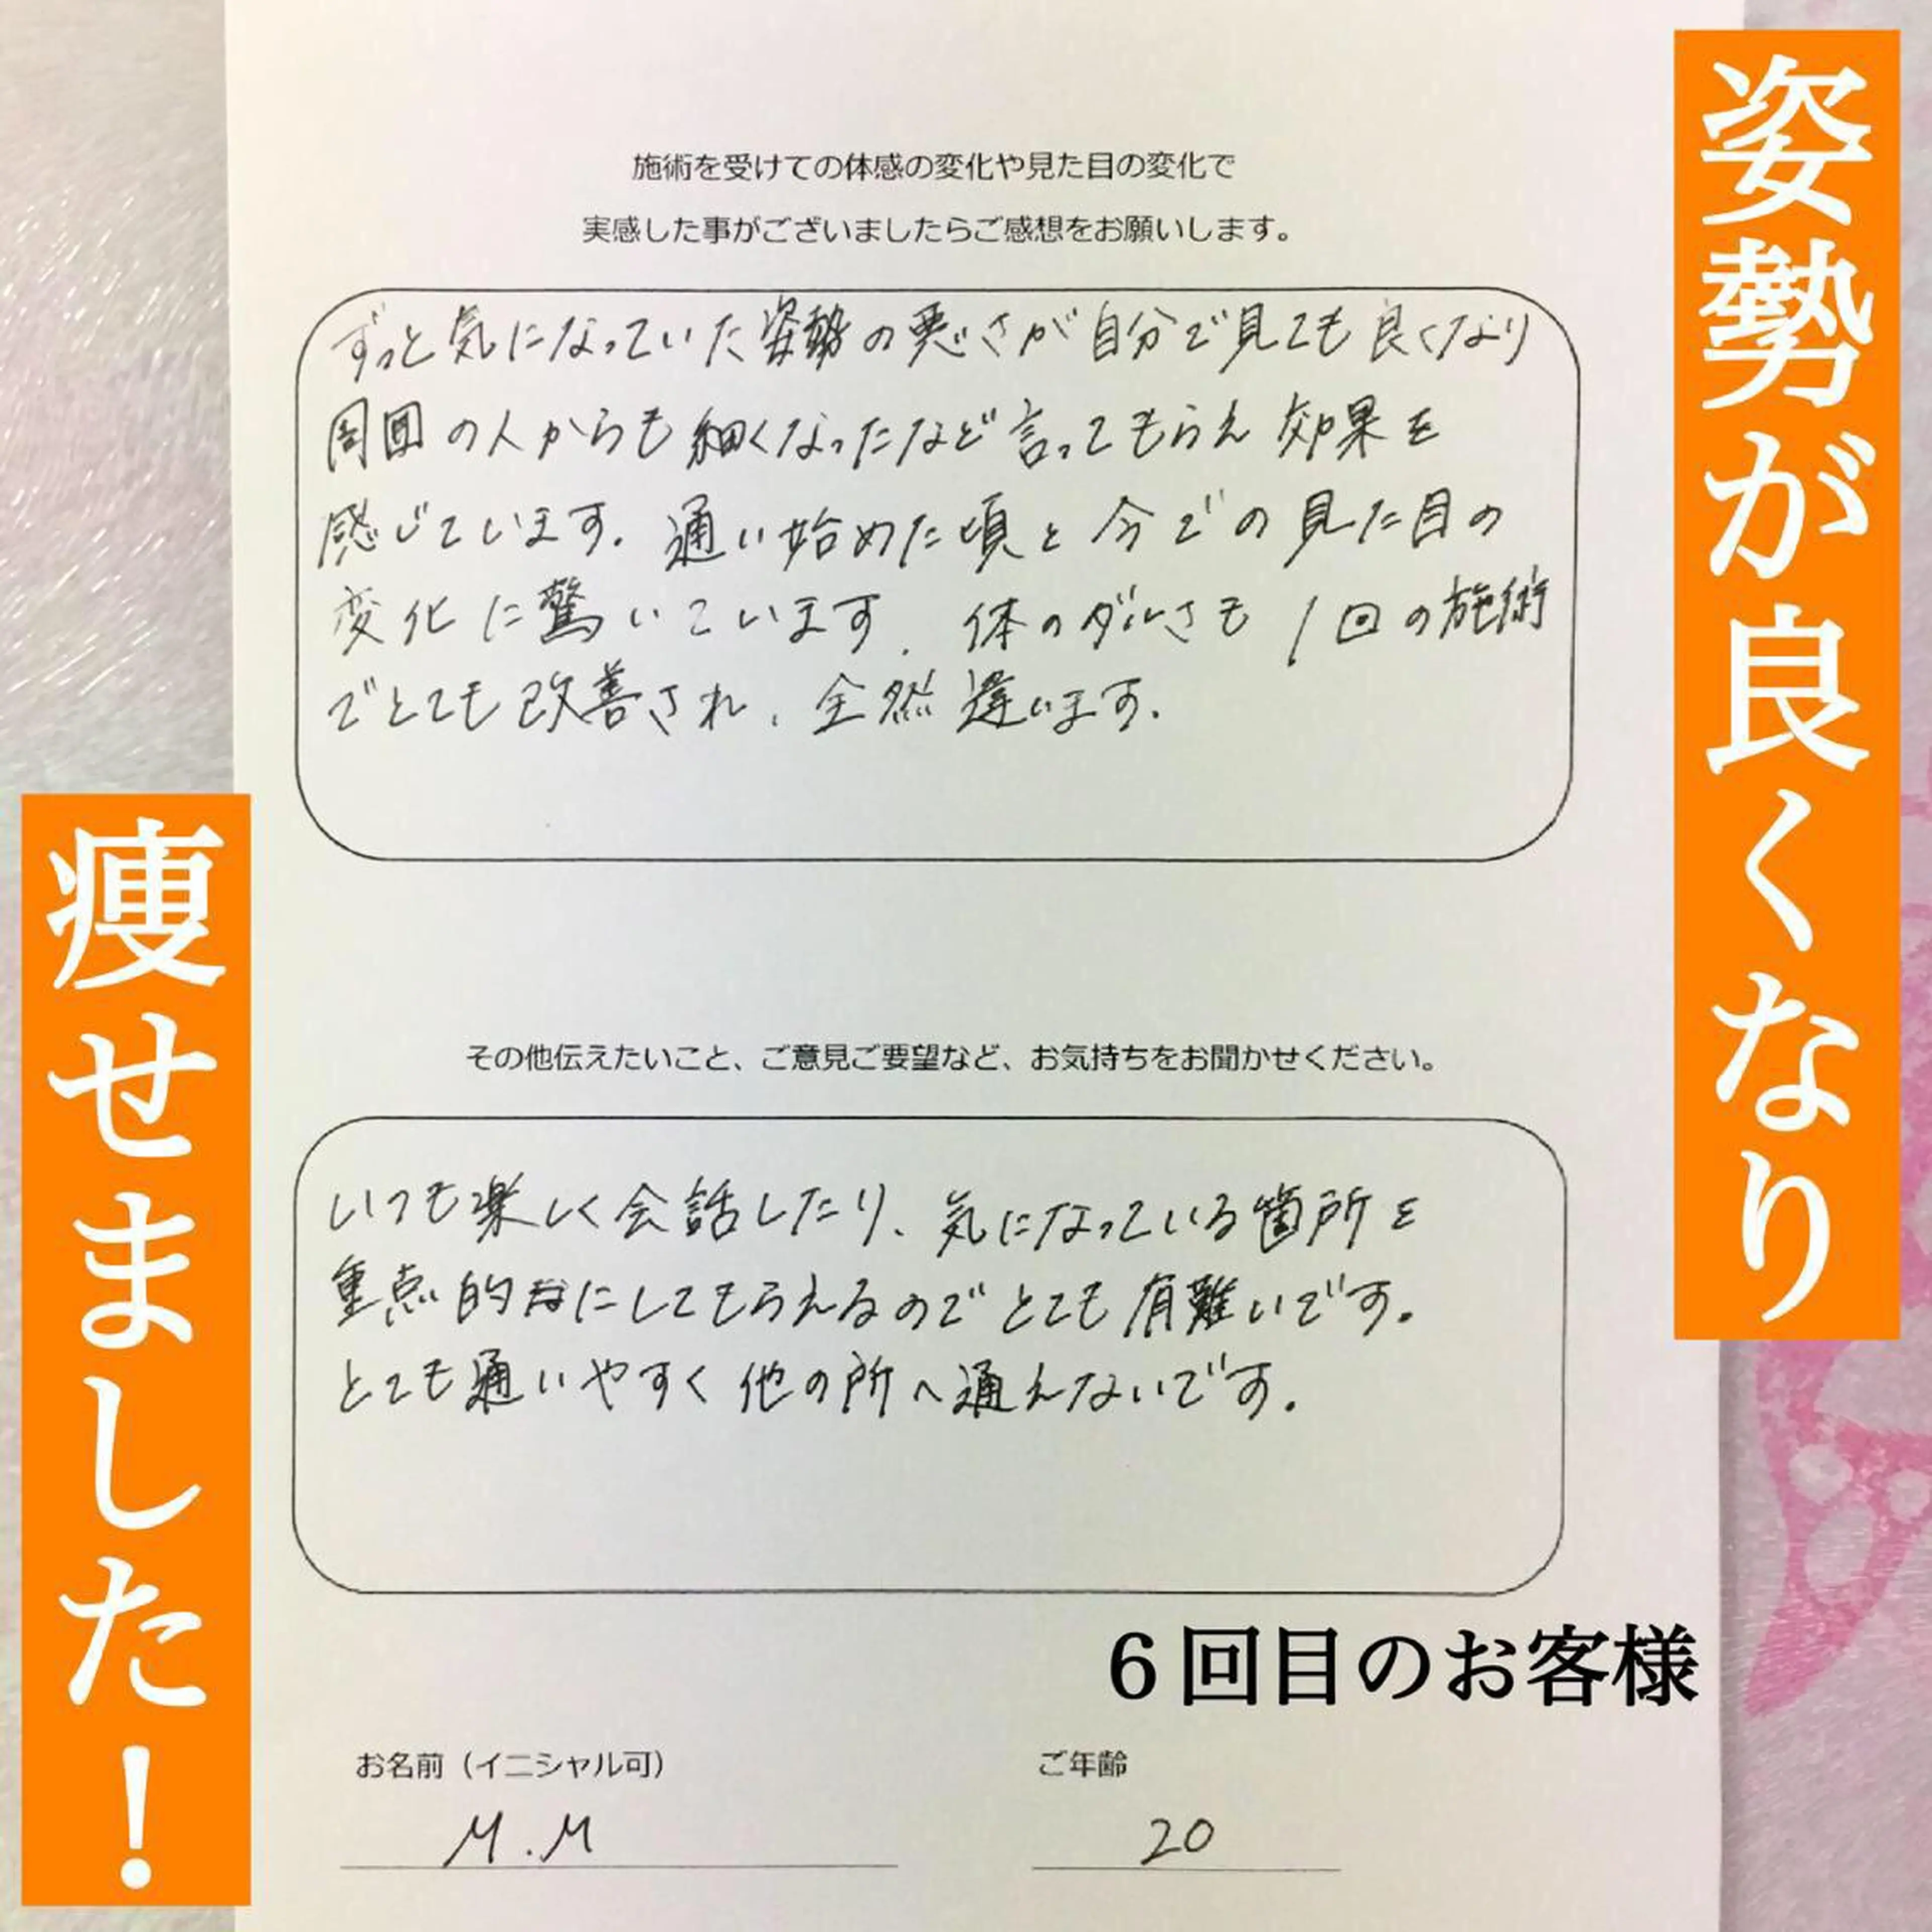 姿勢が良くなり
痩せました!
施術を受けての体感の変化や見た目の変化で
実感した事がございましたらご感想をお願いします。
ずっと気になっていた姿勢の悪さが自分で見ても良くなり
周囲の人からも細くなったなど言ってもらえ効果を
感じています。通い始めた頃と今での見た目の
変化に驚いています。体のダルさも1回の施術
でとても改善され、全然違います。
その他伝えたいこと、ご意見ご要望など、お気持ちをお聞かせください。
いつも楽しく会話したり、気になっている箇所を
重点的にしてもらえるのでとても有難いです。
とても通いやすく他の所へ通えないです。
6回目のお客様
お名前（イニシャル可） ご年齢
M.M 20